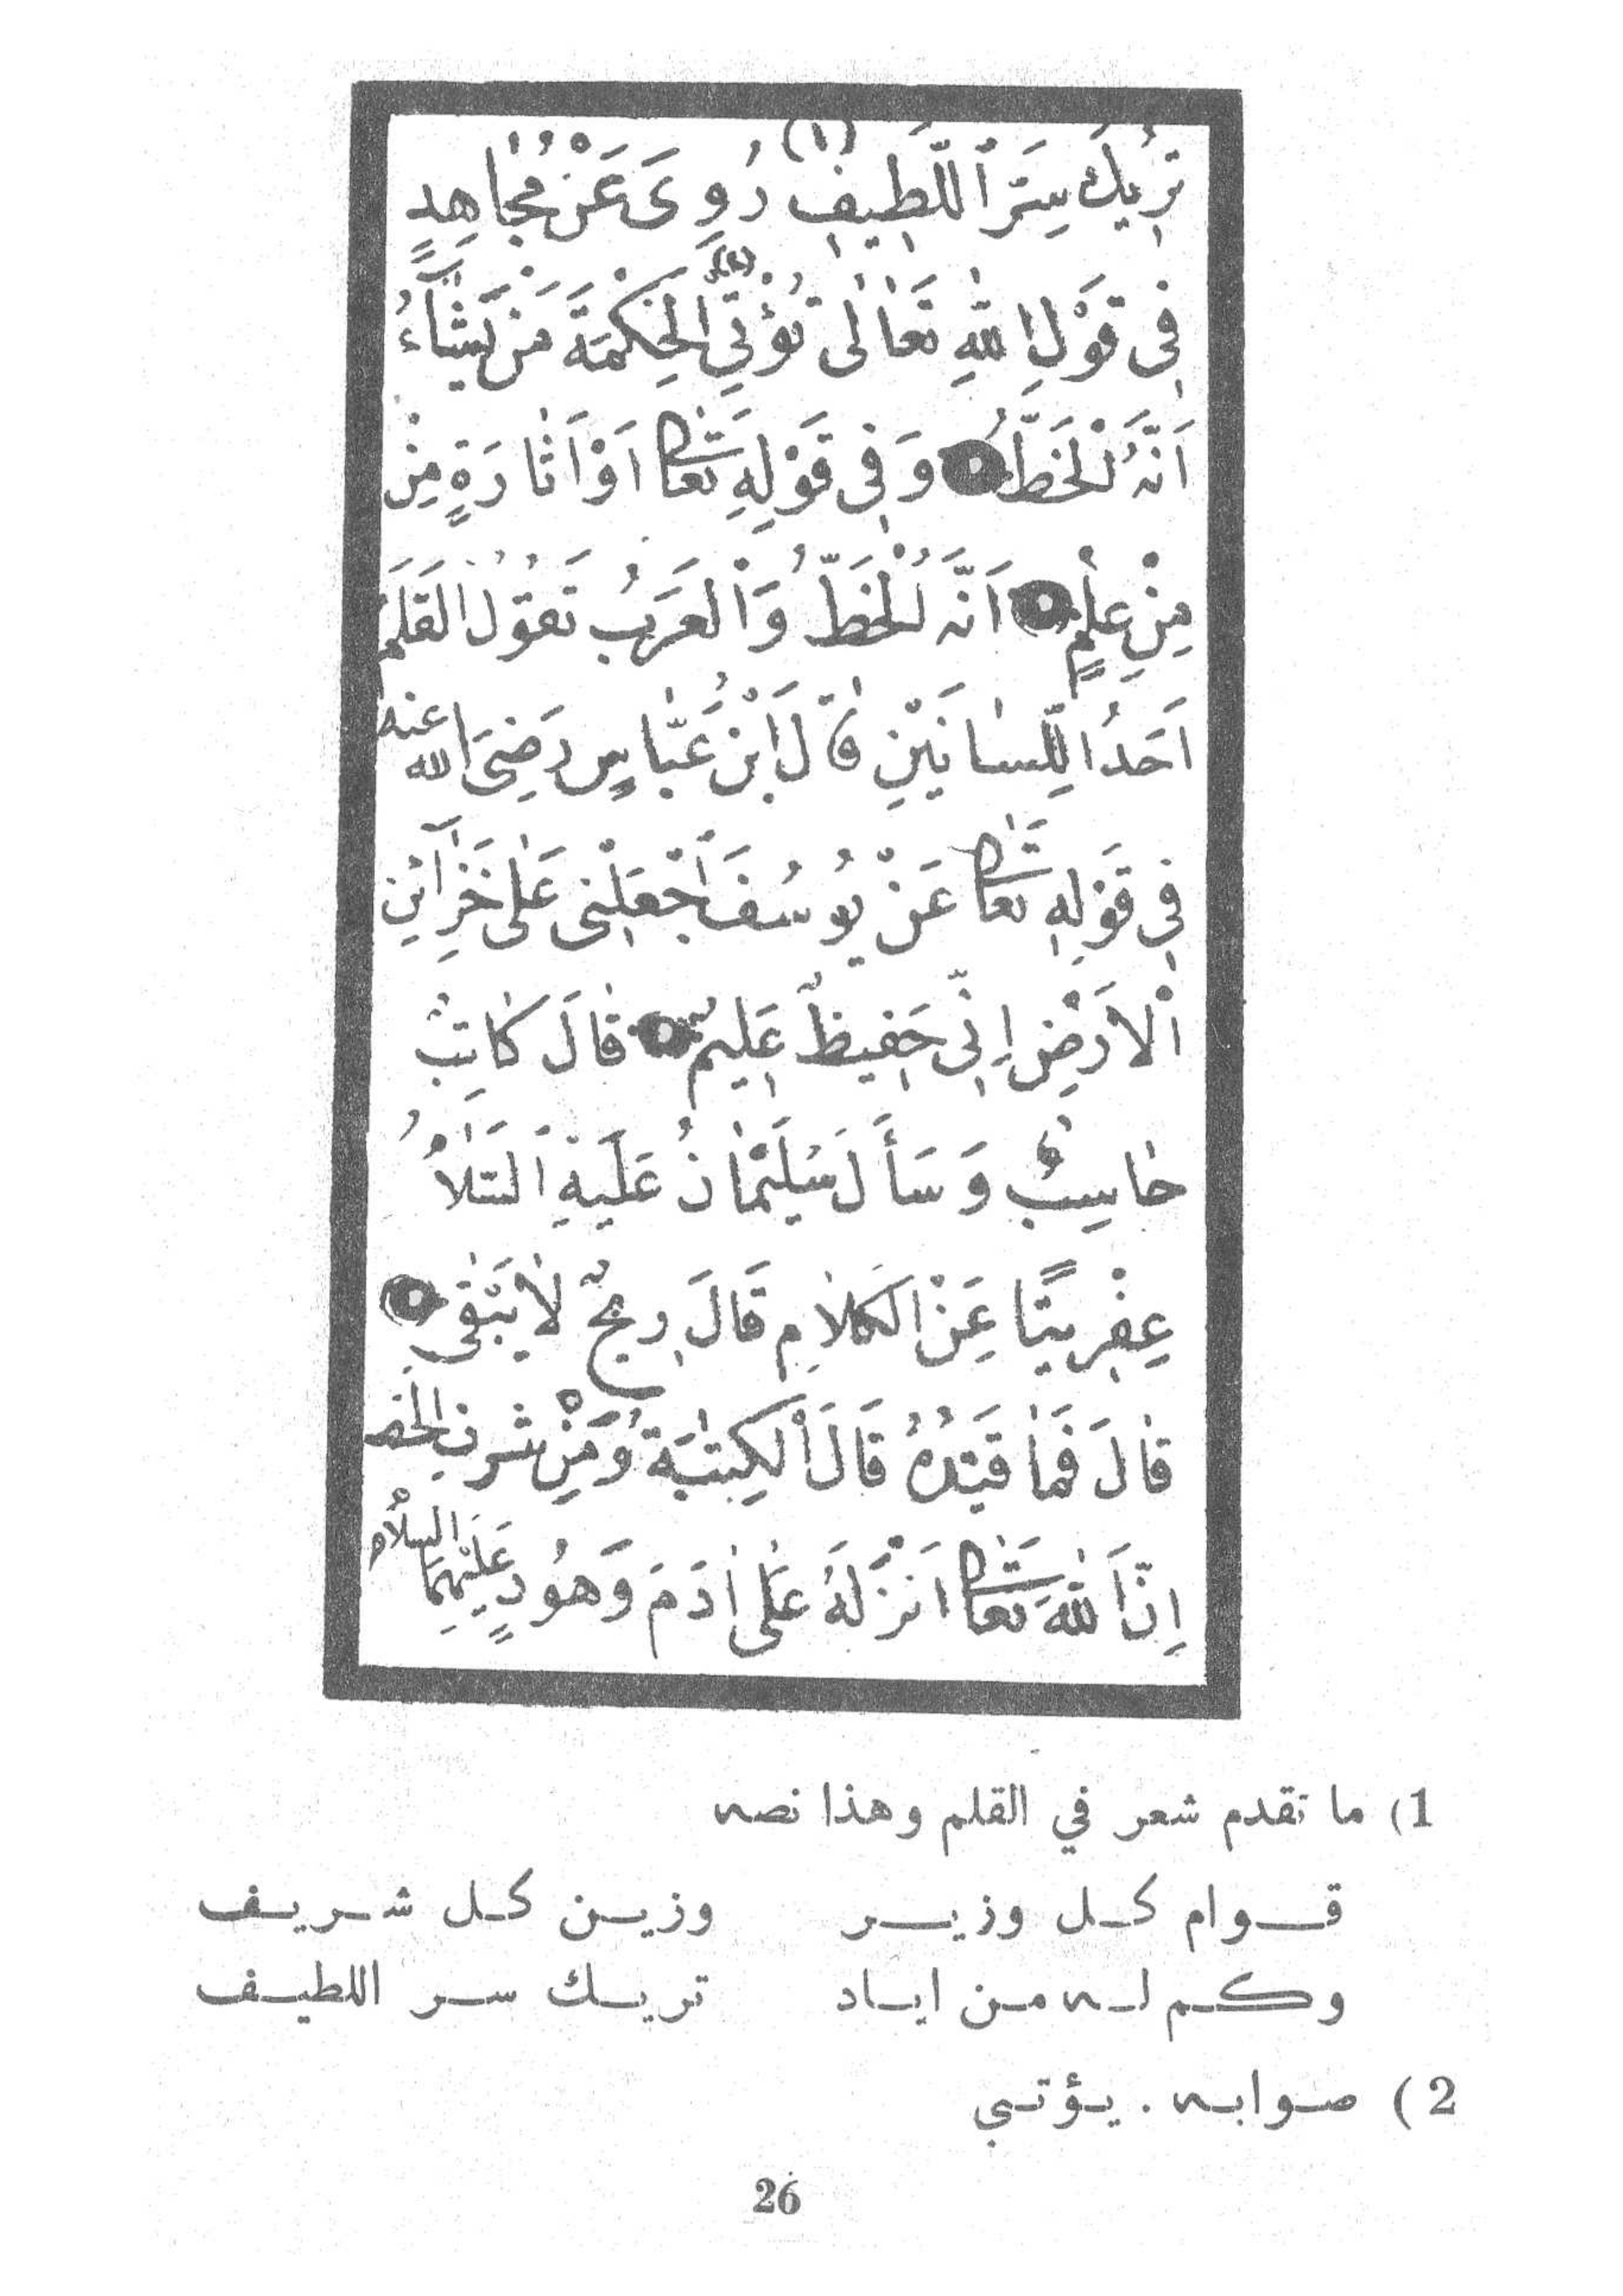 تُرِيكَ سِرَّ اللَّطِيفِ (١) رُوِىَ عَنْ مُجَاهِدٍ
فِى قَوْلِ اللّٰهِ تَعَالٰى تُؤْتِى (٢) الْحِكْمَةَ مَنْ يَشَآءُ
اَنَّهُ الْخَطُّ وَفِى قَوْلِهِ تَعَالٰى اَوْ اَثَارَةٍ مِنْ
مِنْ عِلْمٍ اَنَّهُ الْخَطُّ وَالْعَرَبُ تَقُولُ الْقَلَمُ
اَحَدُ اللِّسَانَيْنِ قَالَ ابْنُ عَبَّاسٍ رَضِىَ اللّٰه عنه
فِى قَوْلِهِ تَعَالٰى عَنْ يُوسُفَ اجْعَلْنِى عَلٰى خَزَآئِنِ
الْاَرْضِ اِنِّى حَفِيظٌ عَلِيمٌ قَالَ كَاتِبٌ
حَاسِبٌ وَسَأَلَ سُلَيْمَانُ عَلَيْهِ السَّلَامُ
عِفْرِيتًا عَنِ الْكَلَامِ قَالَ رِيحٌ لَا يَبْقٰى
قَالَ فَمَا قَيْدُهُ قَالَ الْكِتَابَةُ وَمِنْ شَرَفِ الْخَط
اِنَّ اللّٰهَ تَعَالٰى اَنْزَلَهُ عَلٰى اٰدَمَ وَهُودٍ عَلَيْهِمَا السَّلَامُ
1) ما تقدم شعر في القلم وهذا نصه
قوام كل وزير وزين كل شريف
وكم له من اياد تريك سر اللطيف
2) صوابه . يؤتي
26